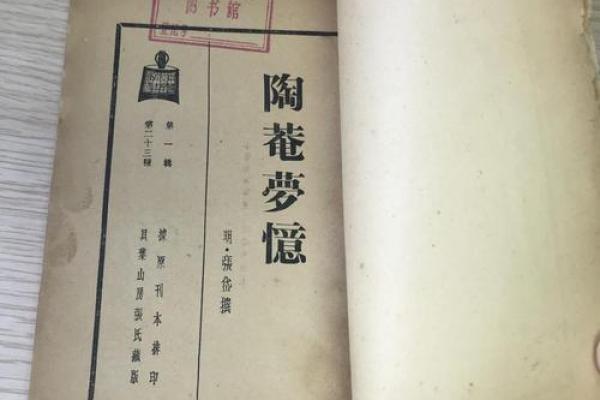 图书馆
登记号
陶菴夢憶
明·張岱撰
第一輯
第二十三種
據原刊本排印
貝葉山房張氏藏版